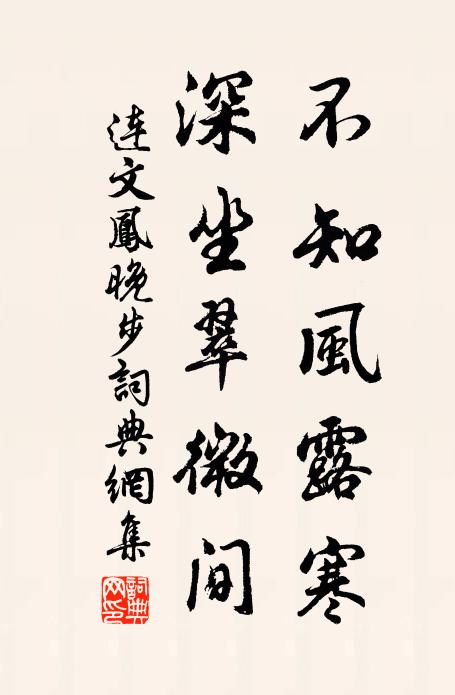 不知風露寒
深坐翠微間
連文鳳晚步詞典網集
詞典網印